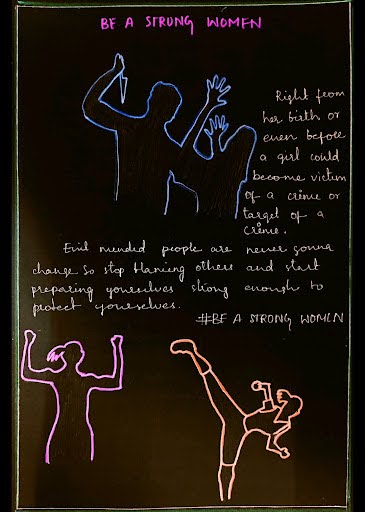 BE A STRONG WOMEN
Right from
her birth or
even before
a girl could
become victim
of a crime or
target of a
crime.
Evil minded people are never gonna
change so stop blaming others and start
preparing yourselves strong enough to
protect yourselves.
#BE A STRONG WOMEN